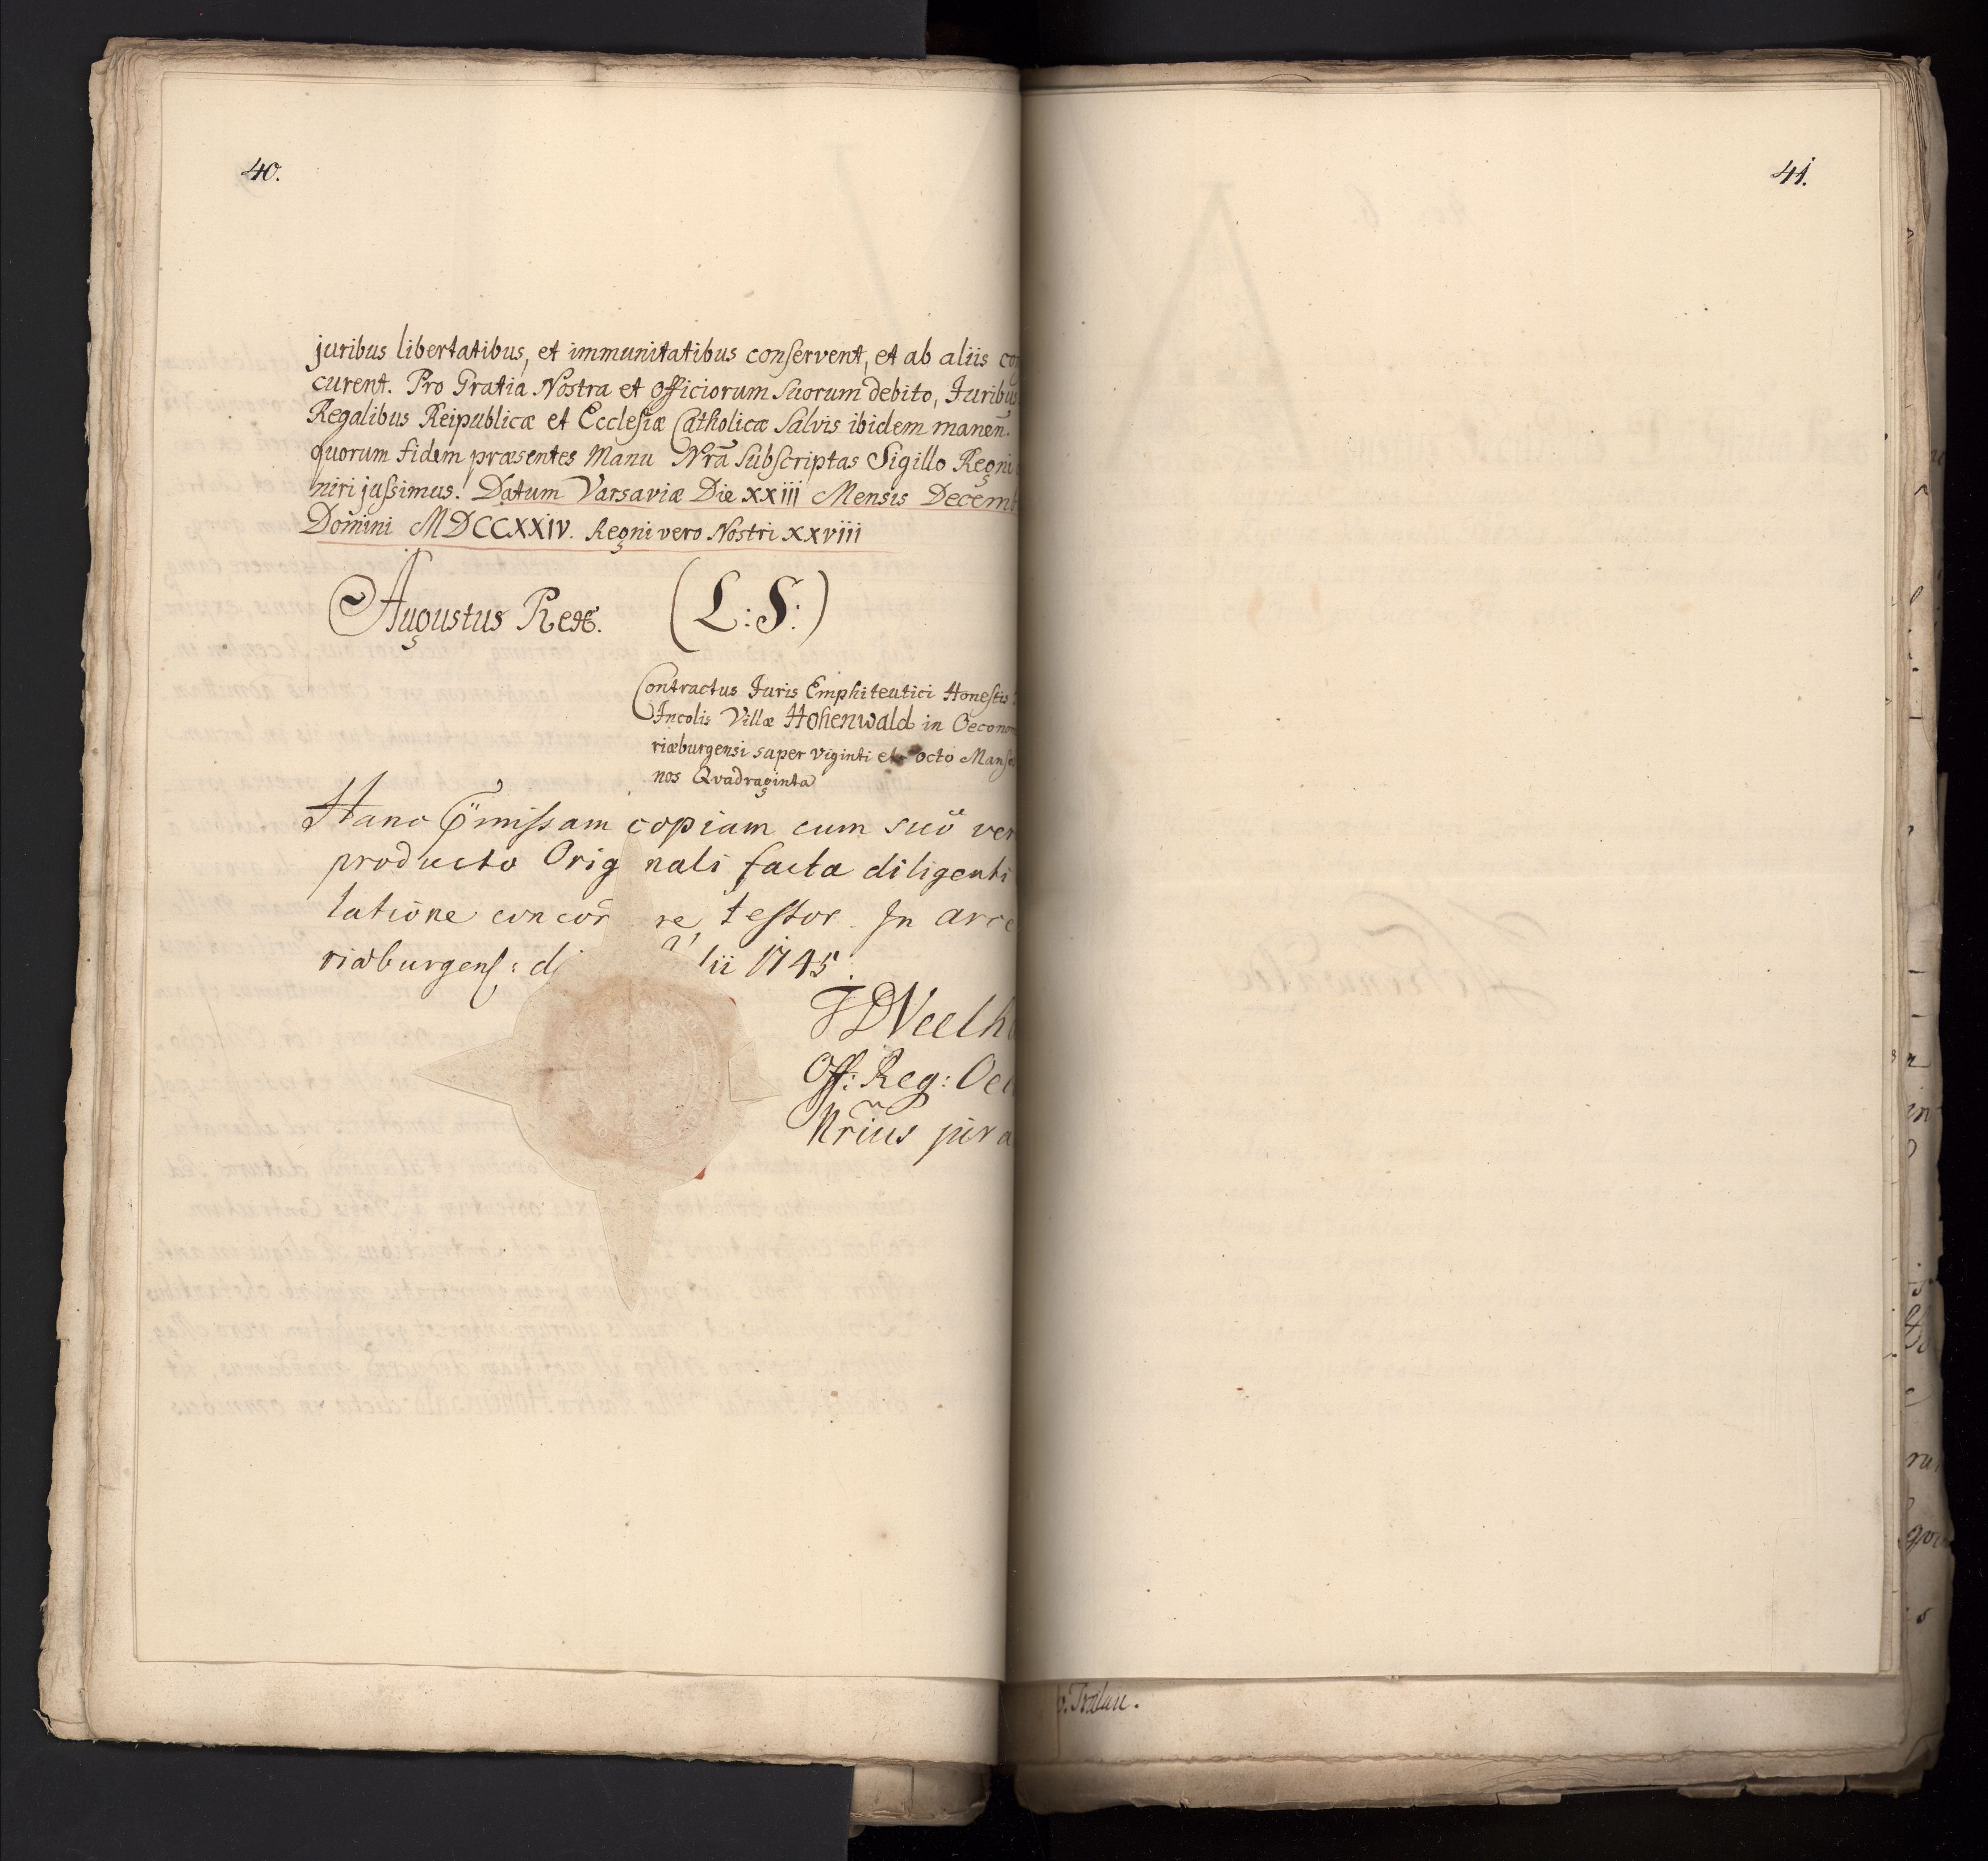 40.
juribus libertatibus, et immunitatibus conservent, et ab aliis
curent. Pro Gratia Nostra et Officiorum Suorum debito, Juribus
Regalibus Reipublicæ et Ecclesiæ Catholicæ Salvis ibidem manen.
quorum fidem præsentes Manu Nrā Subscriptas Sigillo Regni
niri jussimus. Datum Varsaviæ Die XXIII Mensis Decemb
Domini MDCCXXIV. Regni vero Nostri XXVIII
Augustus Rex. (L:S:)
Contractus Juris Emphiteutici Honestis
Incolis Villæ Hohenwald in Oecono
riæburgensi super viginti et octo Manso
nos Qvadraginta
Hanc missam copiam cum suo ver
producto Orig nali facta diligenti
latione concor re testor. In arce
riæburgens: di lii 1745.
Off: Reg: Oec
Nrius jura
41.